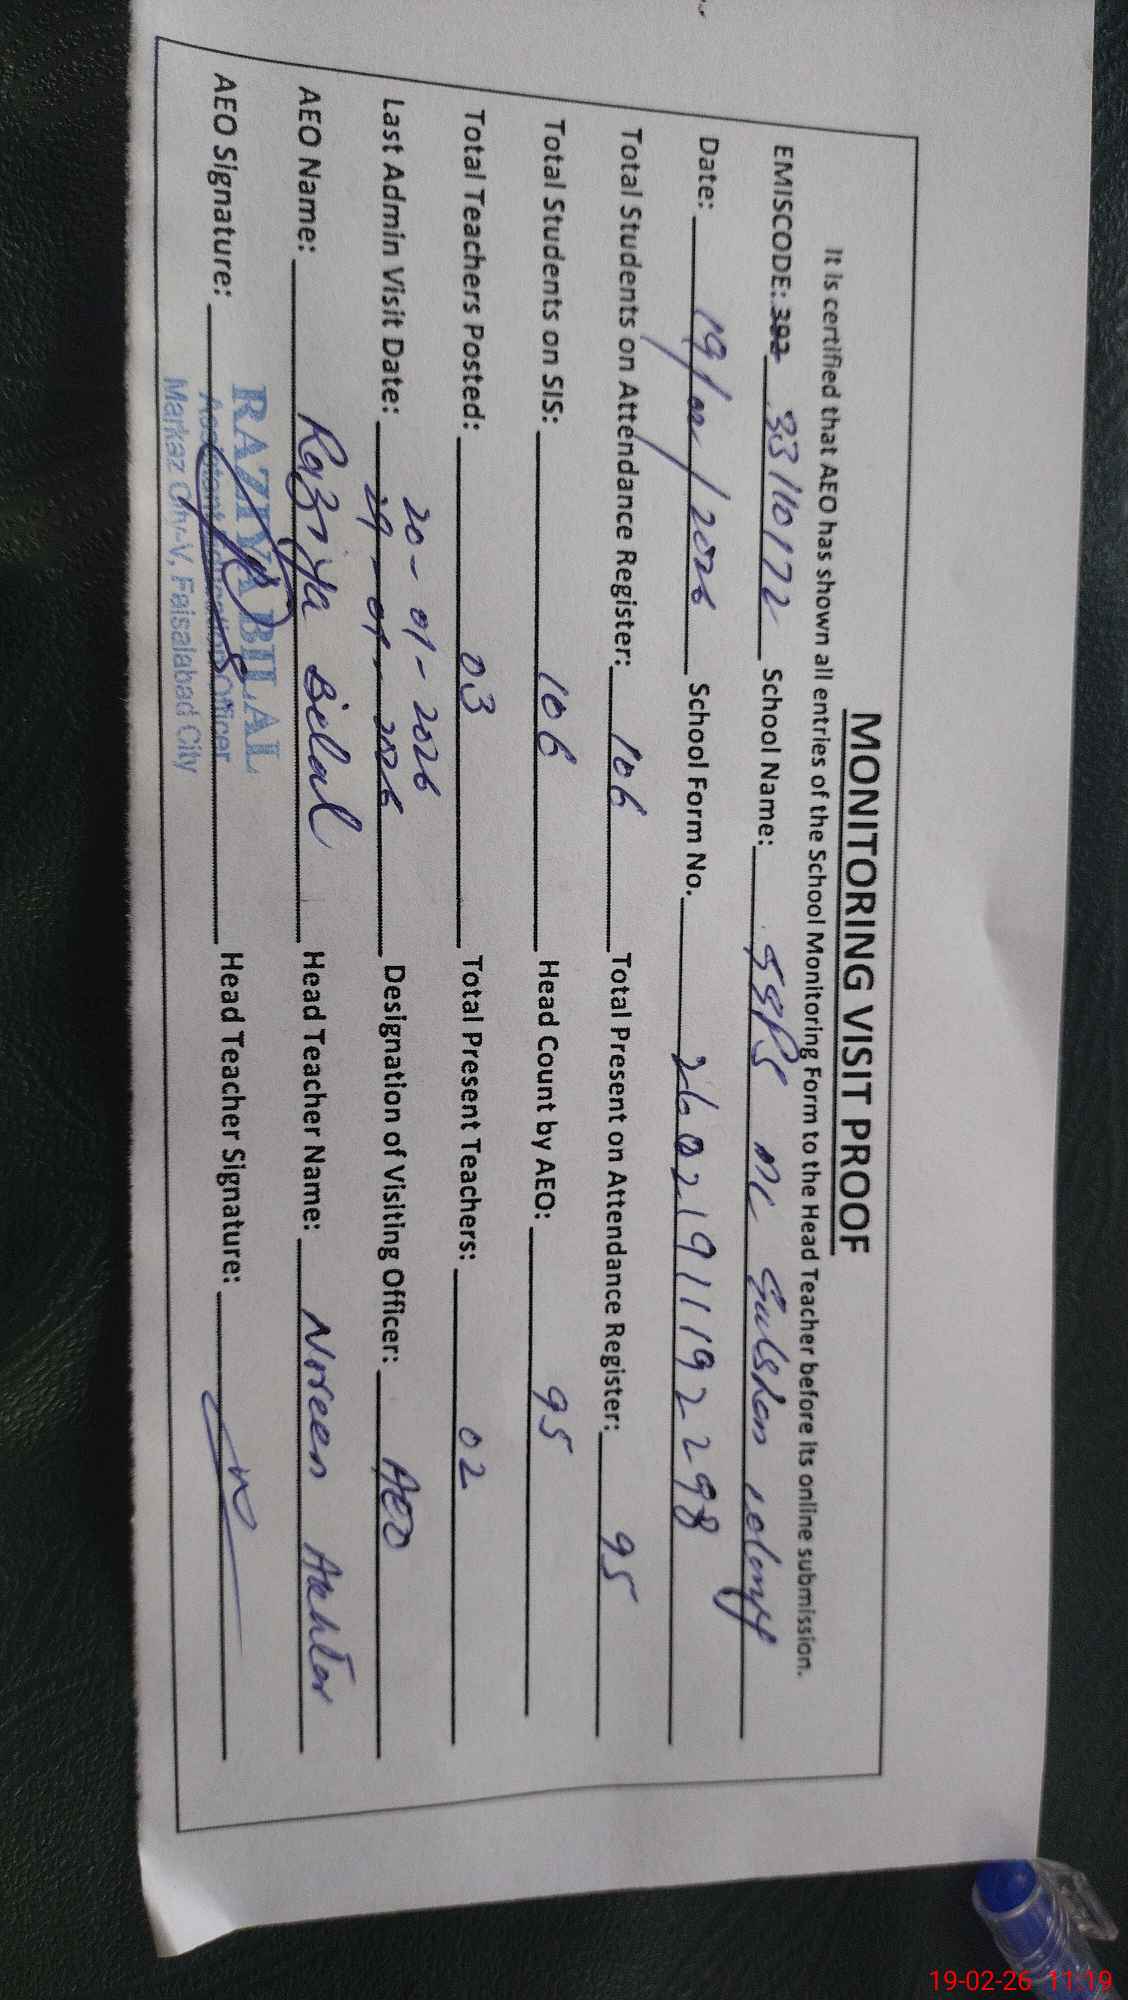 MONITORING VISIT PROOF
It is certified that AEO has shown all entries of the School Monitoring Form to the Head Teacher before its online submission.
EMISCODE: 33110172 School Name: GGPS MC Gulshan colony
Date: 19/02/2026 School Form No. 26021911192298
Total Students on Attendance Register: 106 Total Present on Attendance Register: 95
Total Students on SIS: 106 Head Count by AEO: 95
Total Teachers Posted: 03 Total Present Teachers: 02
20-01-2026
Last Admin Visit Date: 29-01-2026 Designation of Visiting Officer: AEO
AEO Name: Raziya Bilal Head Teacher Name: Noreen Akhtar
AEO Signature: Head Teacher Signature:
RAZIYA BILAL
Assistant Education Officer
Markaz City-V, Faisalabad City
19-02-26 11:19